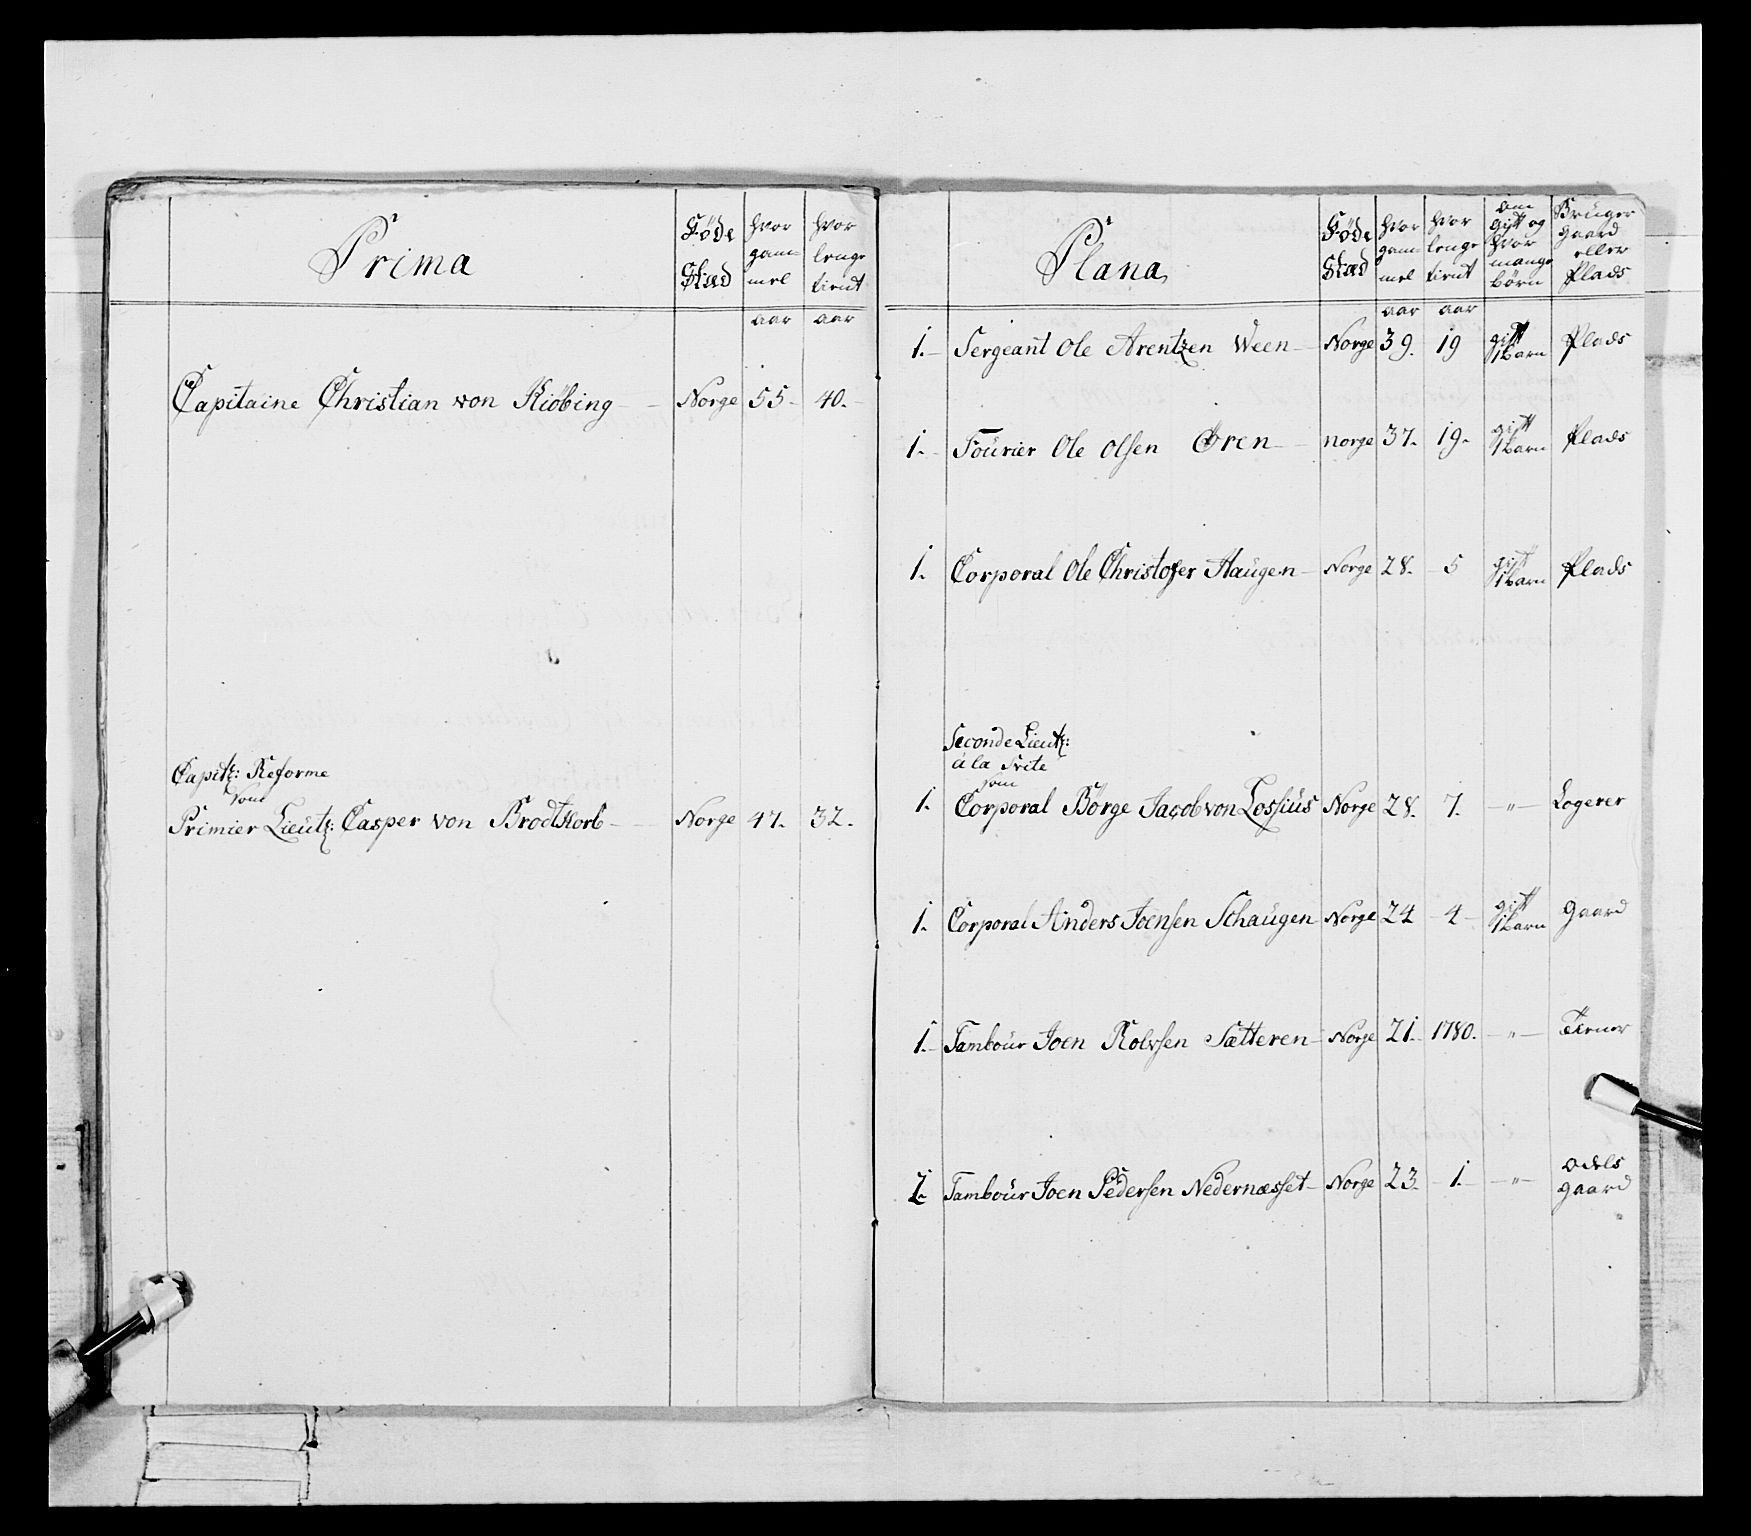 Prima
Føde Stæd
hvor gammel
hvor lenge tient
aar aar
Capitaine Christian von Kiöbing Norge 55 40.
Capitz: Reforme
som
Primier Lieutz: Casper von Brodtkorb Norge 47. 32.
Plana
Føde Stæd
hvor gammel
hvor lenge tient
om gift og hvor mange børn
Bruger gaard eller Plads
aar aar
1. Sergeant Ole Arentzen Ween Norge 39. 19 gift 1 barn Plads
1. Fourier Ole Olsen Øren norge 37. 19. gift 1 barn Plads
1. Corporal Ole Christofer Haugen Norge 28. 5 gift 1 barn Plads
Seconde Lieutz:
à la Svite
som
1. Corporal Börge Jacob von Lossius Norge 28. 7. " Logerer
1. Corporal Anders Joensen Schaugen Norge 24 4 gift 1 barn gaard
1. Tambour Joen Rolvsen Sætteren Norge 21. 1780. " tiener
1. Tambour Joen Pedersen Nedernæsset Norge 23. 1. " odels gaard